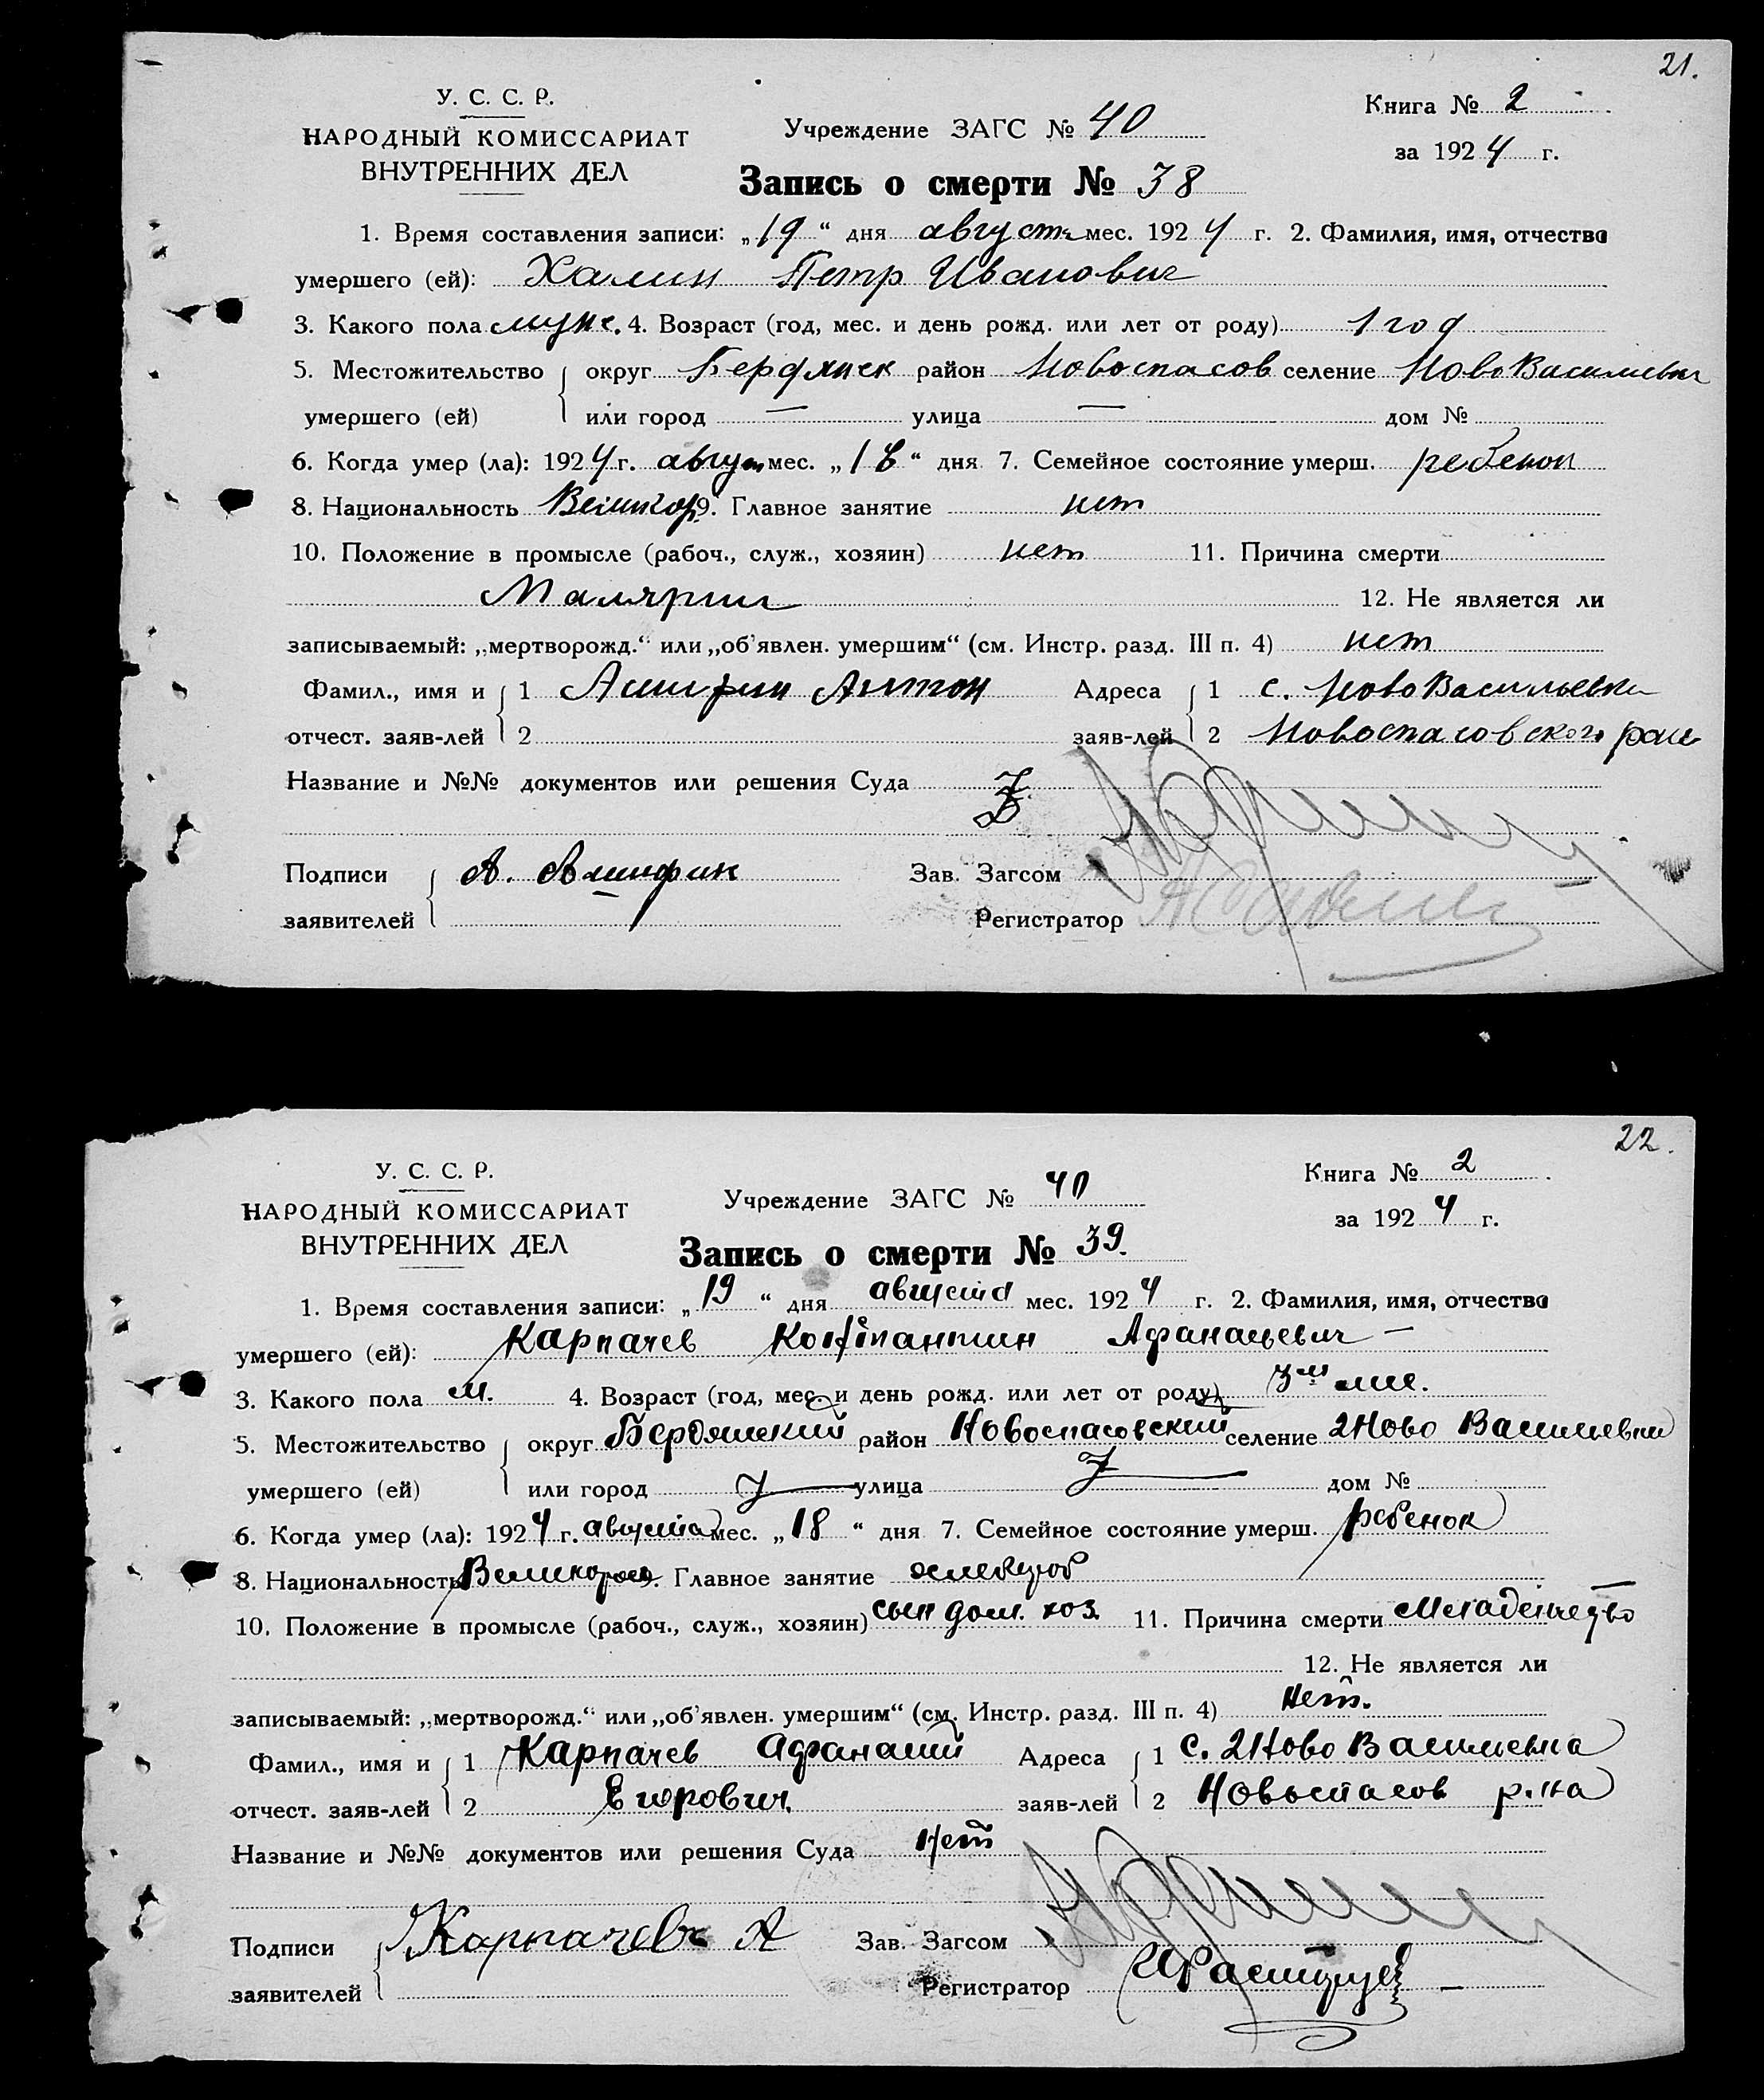 21.
У. С. С. Р.
НАРОДНЫЙ КОМИССАРИАТ
ВНУТРЕННИХ ДЕЛ
Учреждение ЗАГС № 40
Книга № 2
за 1924 г.
Запись о смерти № 38
1. Время составления записи: „19“ дня августа мес. 1924 г. 2. Фамилия, имя, отчество
умершего (ей): Халин Петр Иванович
3. Какого пола муж. 4. Возраст (год, мес. и день рожд. или лет от роду) 1 год
5. Местожительство округ Бердянск район Новоспасов селение НовоВасильевка
умершего (ей) или город — улица — дом №
6. Когда умер (ла): 1924 г. август мес. „18“ дня 7. Семейное состояние умерш. ребенок
8. Национальность Великор. 9. Главное занятие нет
10. Положение в промысле (рабоч., служ., хозяин) нет 11. Причина смерти
Малярии 12. Не является ли
записываемый: „мертворожд.“ или „об'явлен. умершим“ (см. Инстр. разд. III п. 4) нет
Фамил., имя и 1 Антон Адреса 1 с. НовоВасильевка
отчест. заяв-лей 2 заяв-лей 2 Новоспасовского
Название и №№ документов или решения Суда
Подписи А. Зав. Загсом
заявителей Регистратор
22.
У. С. С. Р.
НАРОДНЫЙ КОМИССАРИАТ
ВНУТРЕННИХ ДЕЛ
Учреждение ЗАГС № 40
Книга № 2
за 1924 г.
Запись о смерти № 39.
1. Время составления записи: „19“ дня августа мес. 1924 г. 2. Фамилия, имя, отчество
умершего (ей): Карпачев Константин Афанацевич —
3. Какого пола м. 4. Возраст (год, мес. и день рожд. или лет от роду) 3
5. Местожительство округ Бердянский район Новоспасовский селение 2 Ново Васильевки
умершего (ей) или город улица дом №
6. Когда умер (ла): 1924 г. августа мес. „18“ дня 7. Семейное состояние умерш. ребенок
8. Национальность Великорос 9. Главное занятие хлебороб
10. Положение в промысле (рабоч., служ., хозяин) сын дом. хоз. 11. Причина смерти
12. Не является ли
записываемый: „мертворожд.“ или „об'явлен. умершим“ (см. Инстр. разд. III п. 4) нет.
Фамил., имя и 1 Карпачев Афанасий Адреса 1 с. 2 Ново Васильевка
отчест. заяв-лей 2 Егорович заяв-лей 2 Новоспасов р.на
Название и №№ документов или решения Суда нет
Подписи Карпачевъ А Зав. Загсом
заявителей Регистратор